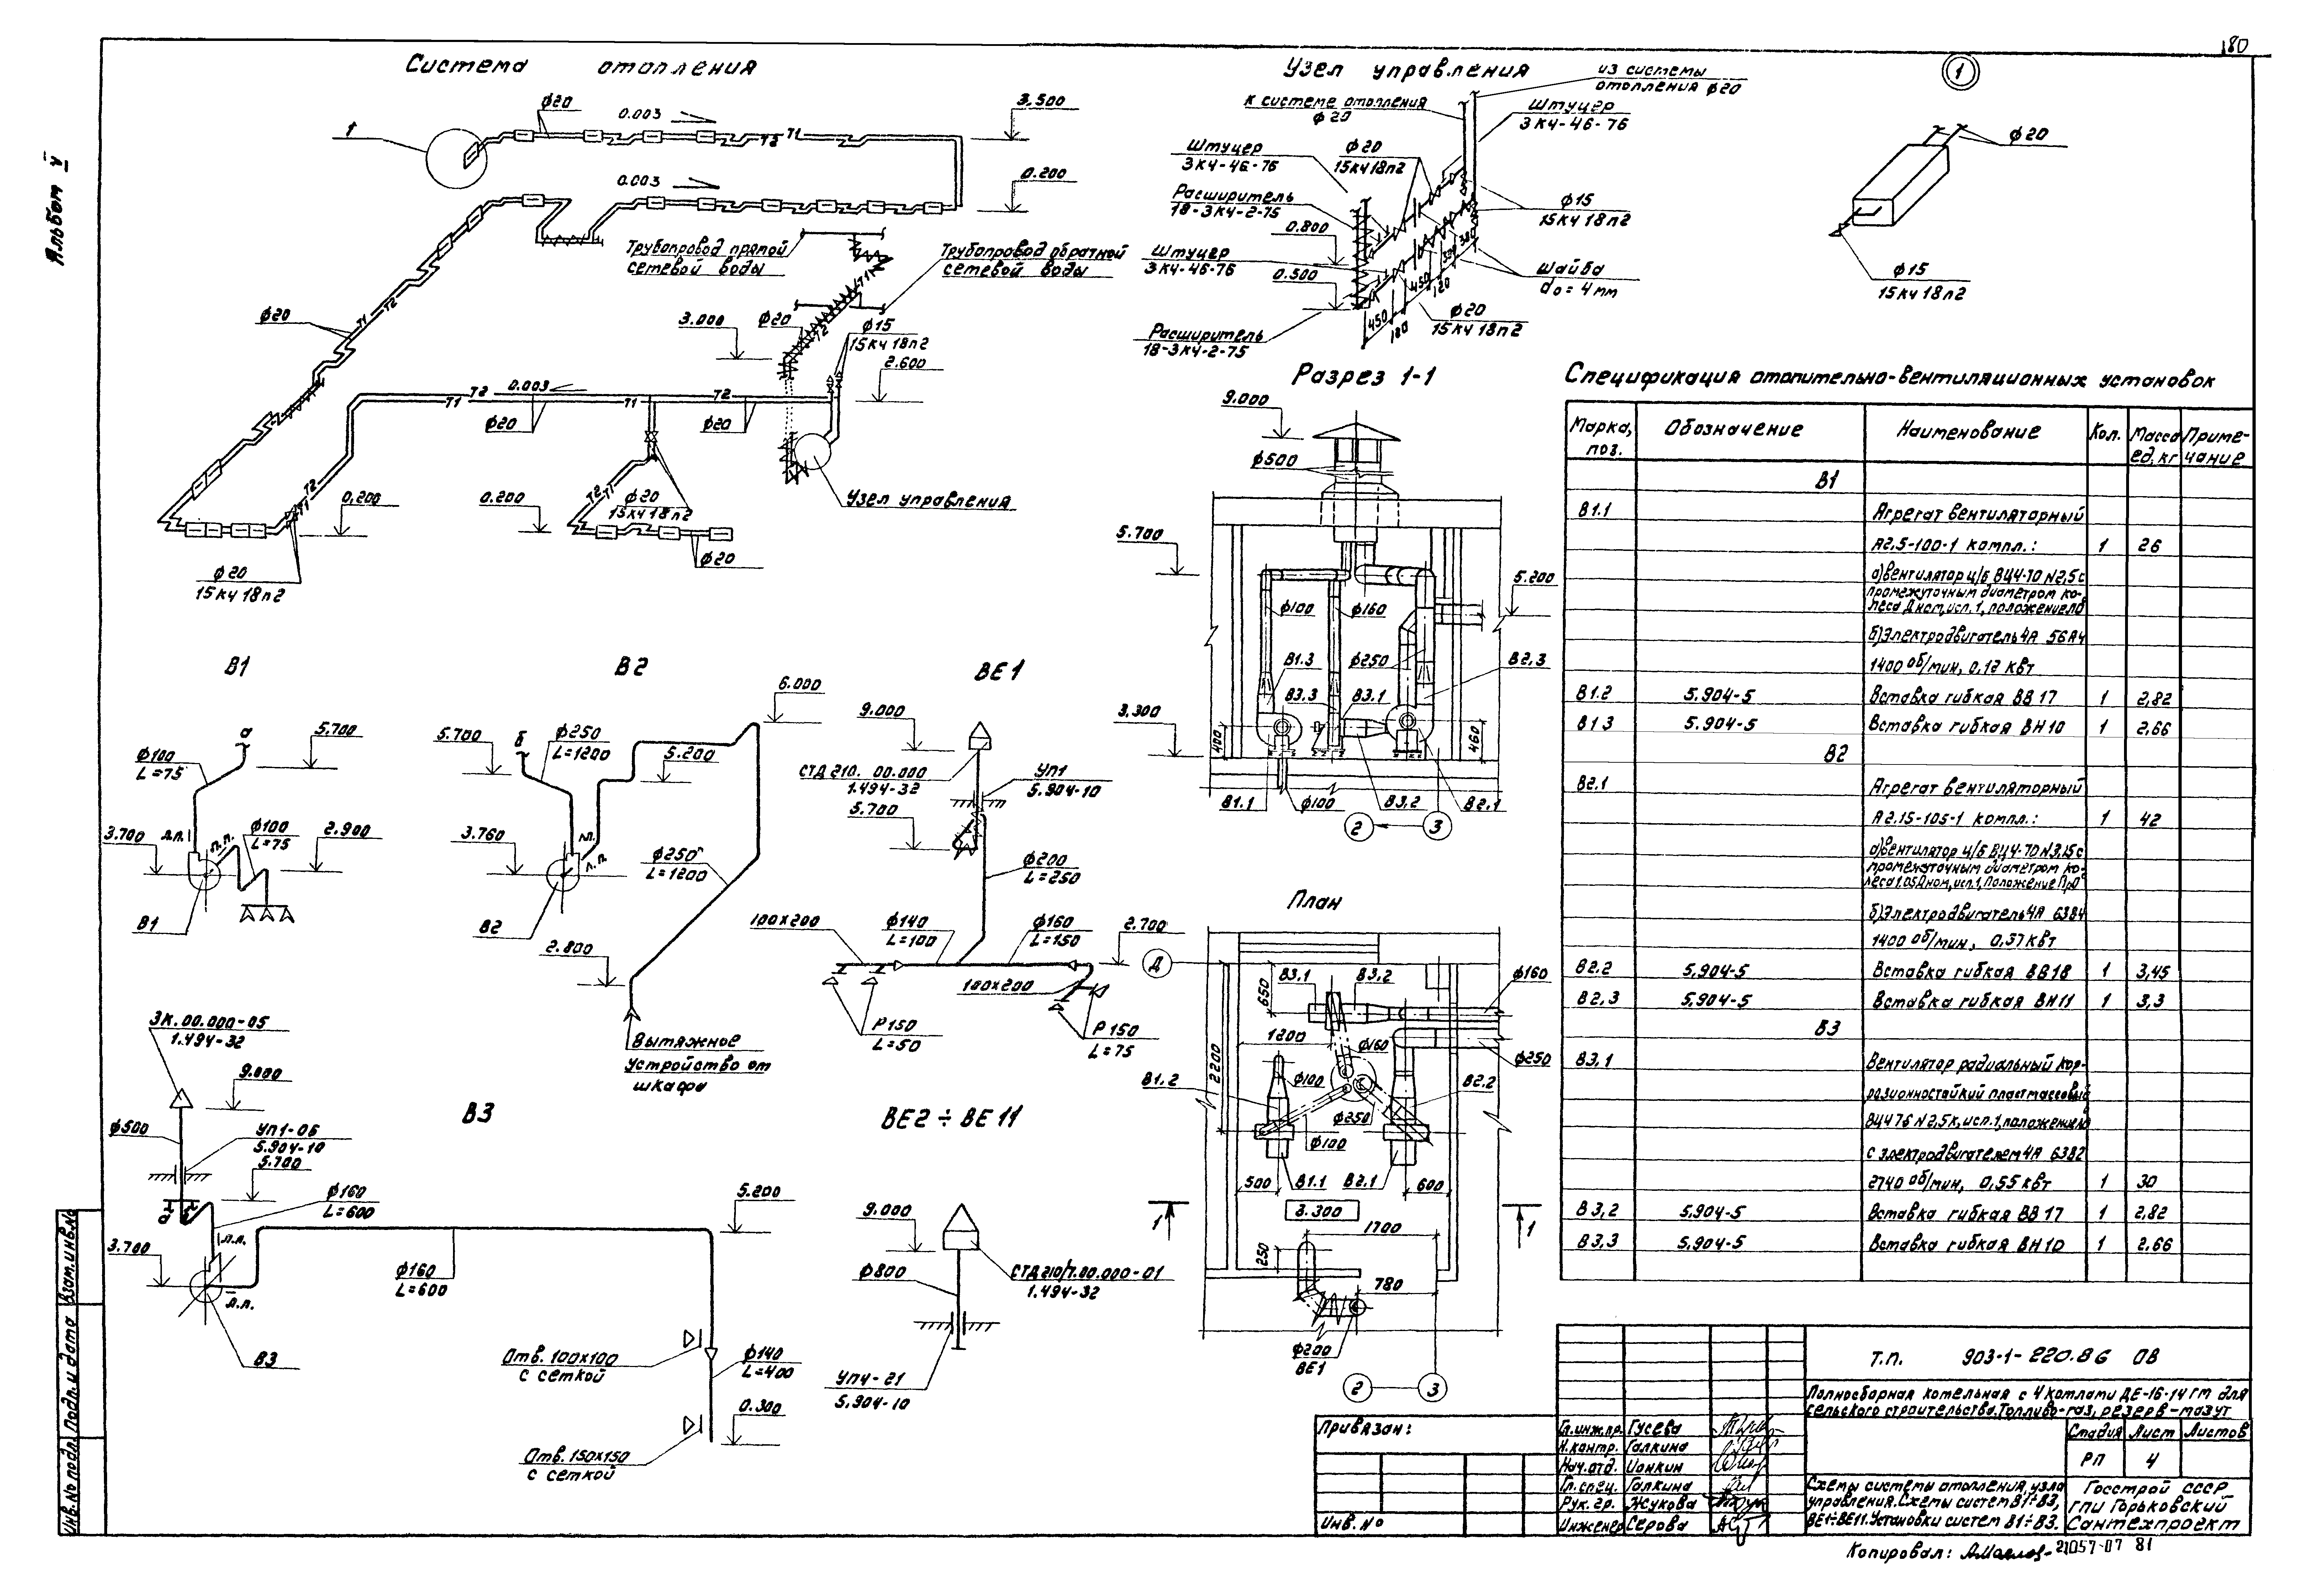 180
Альбом V
Система отопления
1
ф20
0.003
Т1
Т2
3.500
0.003
0.200
Трубопровод прямой
сетевой воды
Трубопровод обратной
сетевой воды
Т1
Т2
ф20
Т1
Т2
3.000
ф20
ф15
15кч 18п2
2.600
Т2
0.003
Т1
Т1
Т2
ф20
ф20
Узел управления
Т2
Т1
0.200
0.200
Т2
Т1
ф20
15кч 18п2
ф20
ф20
15кч 18п2
Узел управления
из системы
отопления ф20
к системе отопления
ф20
Штуцер
3кч-46-76
Штуцер
3кч-46-76
ф20
15кч18п2
Расширитель
18-3кч-2-75
ф15
15кч 18п2
0.800
Штуцер
3кч-46-76
0.500
Шайба
do=4мм
380
450
120
450
180
ф20
15кч 18п2
Расширитель
18-3кч-2-75
1
ф20
ф15
15кч 18п2
В1
а
5.700
ф100
L=75
3.700
л.п.
п.п.
ф100
L=75
2.900
В1
В2
6.000
5.700
б
ф250
L=1200
5.200
3.760
л.п.
ф250
L=1200
В2
2.800
Вытяжное
устройство от
шкафа
ВЕ1
9.000
СТД 210. 00.000
1.494-32
УП1
5.904-10
5.700
ф200
L=250
100х200
ф140
L=100
ф160
L=150
2.700
100х200
Р150
L=50
Р150
L=75
В3
ЗК.00.000-05
1.494-32
9.000
ф500
УП1-06
5.904-10
5.700
ф160
L=600
5.200
3.700
л.п.
л.п.
ф160
L=600
В3
Отв. 100х100
с сеткой
ф140
L=400
0.300
Отв. 150х150
с сеткой
ВЕ2 ÷ ВЕ11
9.000
ф800
СТД210/7.00.000-01
1.494-32
УП4-21
5.904-10
Разрез 1-1
9.000
ф500
5.700
5.200
ф100
ф160
В1.3
ф250
В2.3
В3.3
В3.1
3.300
400
460
В1.1
ф100
В3.2
В2.1
2
3
План
Д
В3.1
В3.2
ф160
650
1200
2200
ф160
ф250
В1.2
ф100
В2.2
ф250
ф100
500
В1.1
В2.1
600
3.300
1
1
1700
250
780
ф200
ВЕ1
2
3
Спецификация отопительно-вентиляционных установок
Марка, поз.
Обозначение
Наименование
Кол.
Масса ед, кг
Примечание
В1
В1.1 Агрегат вентиляторный
А2,5-100-1 компл.: 1 26
а)вентилятор ц/б ВЦ4-70 N2,5 с
промежуточным диаметром ко-
леса Дном, исп. 1, положение Л0
б)Электродвигатель 4А 56А4
1400 об/мин, 0,12 квт
В1.2 5.904-5 Вставка гибкая ВВ 17 1 2,82
В1 3 5.904-5 Вставка гибкая ВН 10 1 2,66
В2
В2.1 Агрегат вентиляторный
А2.15-105-1 компл.: 1 42
а)вентилятор ц/б ВЦ4-70 N3,15 с
промежуточным диаметром ко-
леса 1.05Дном, исп.1, Положение Пр0
б)Электродвигатель 4А 63В4
1400 об/мин, 0,37 квт
В2.2 5.904-5 Вставка гибкая ВВ 18 1 3,45
В2.3 5.904-5 Вставка гибкая ВН11 1 3,3
В3
В3.1 Вентилятор радиальный кор-
розионностойкий пластмассовый
ВЦ4 76 N2,5к, исп.1, положение Л0
с электродвигателем 4А 63В2
2740 об/мин, 0,55 квт 1 30
В3,2 5.904-5 Вставка гибкая ВВ 17 1 2,82
В3,3 5.904-5 Вставка гибкая ВН 10 1 2,66
Т.п. 903-1-220.86 ОВ
Полносборная котельная с 4 котлами ДЕ-16-14 гм для
сельского строительства. Топливо-газ, резерв-мазут
Привязан:
Инв. №
Гл.инж.пр. Гусева
Н.контр. Галкина
Нач.отд. Ионкин
Гл.спец. Галкина
Рук. гр. Жукова
Инженер Серова
Стадия Лист Листов
РП 4
Схемы системы отопления, узла
управления. Схемы систем В1÷В3,
ВЕ1÷ВЕ11. Установки систем В1÷В3.
Госстрой СССР
ГПИ Горьковский
Сантехпроект
Копировал:
21057-07 81
Взам. инв. №
Подп. и дата
Инв. № подл.